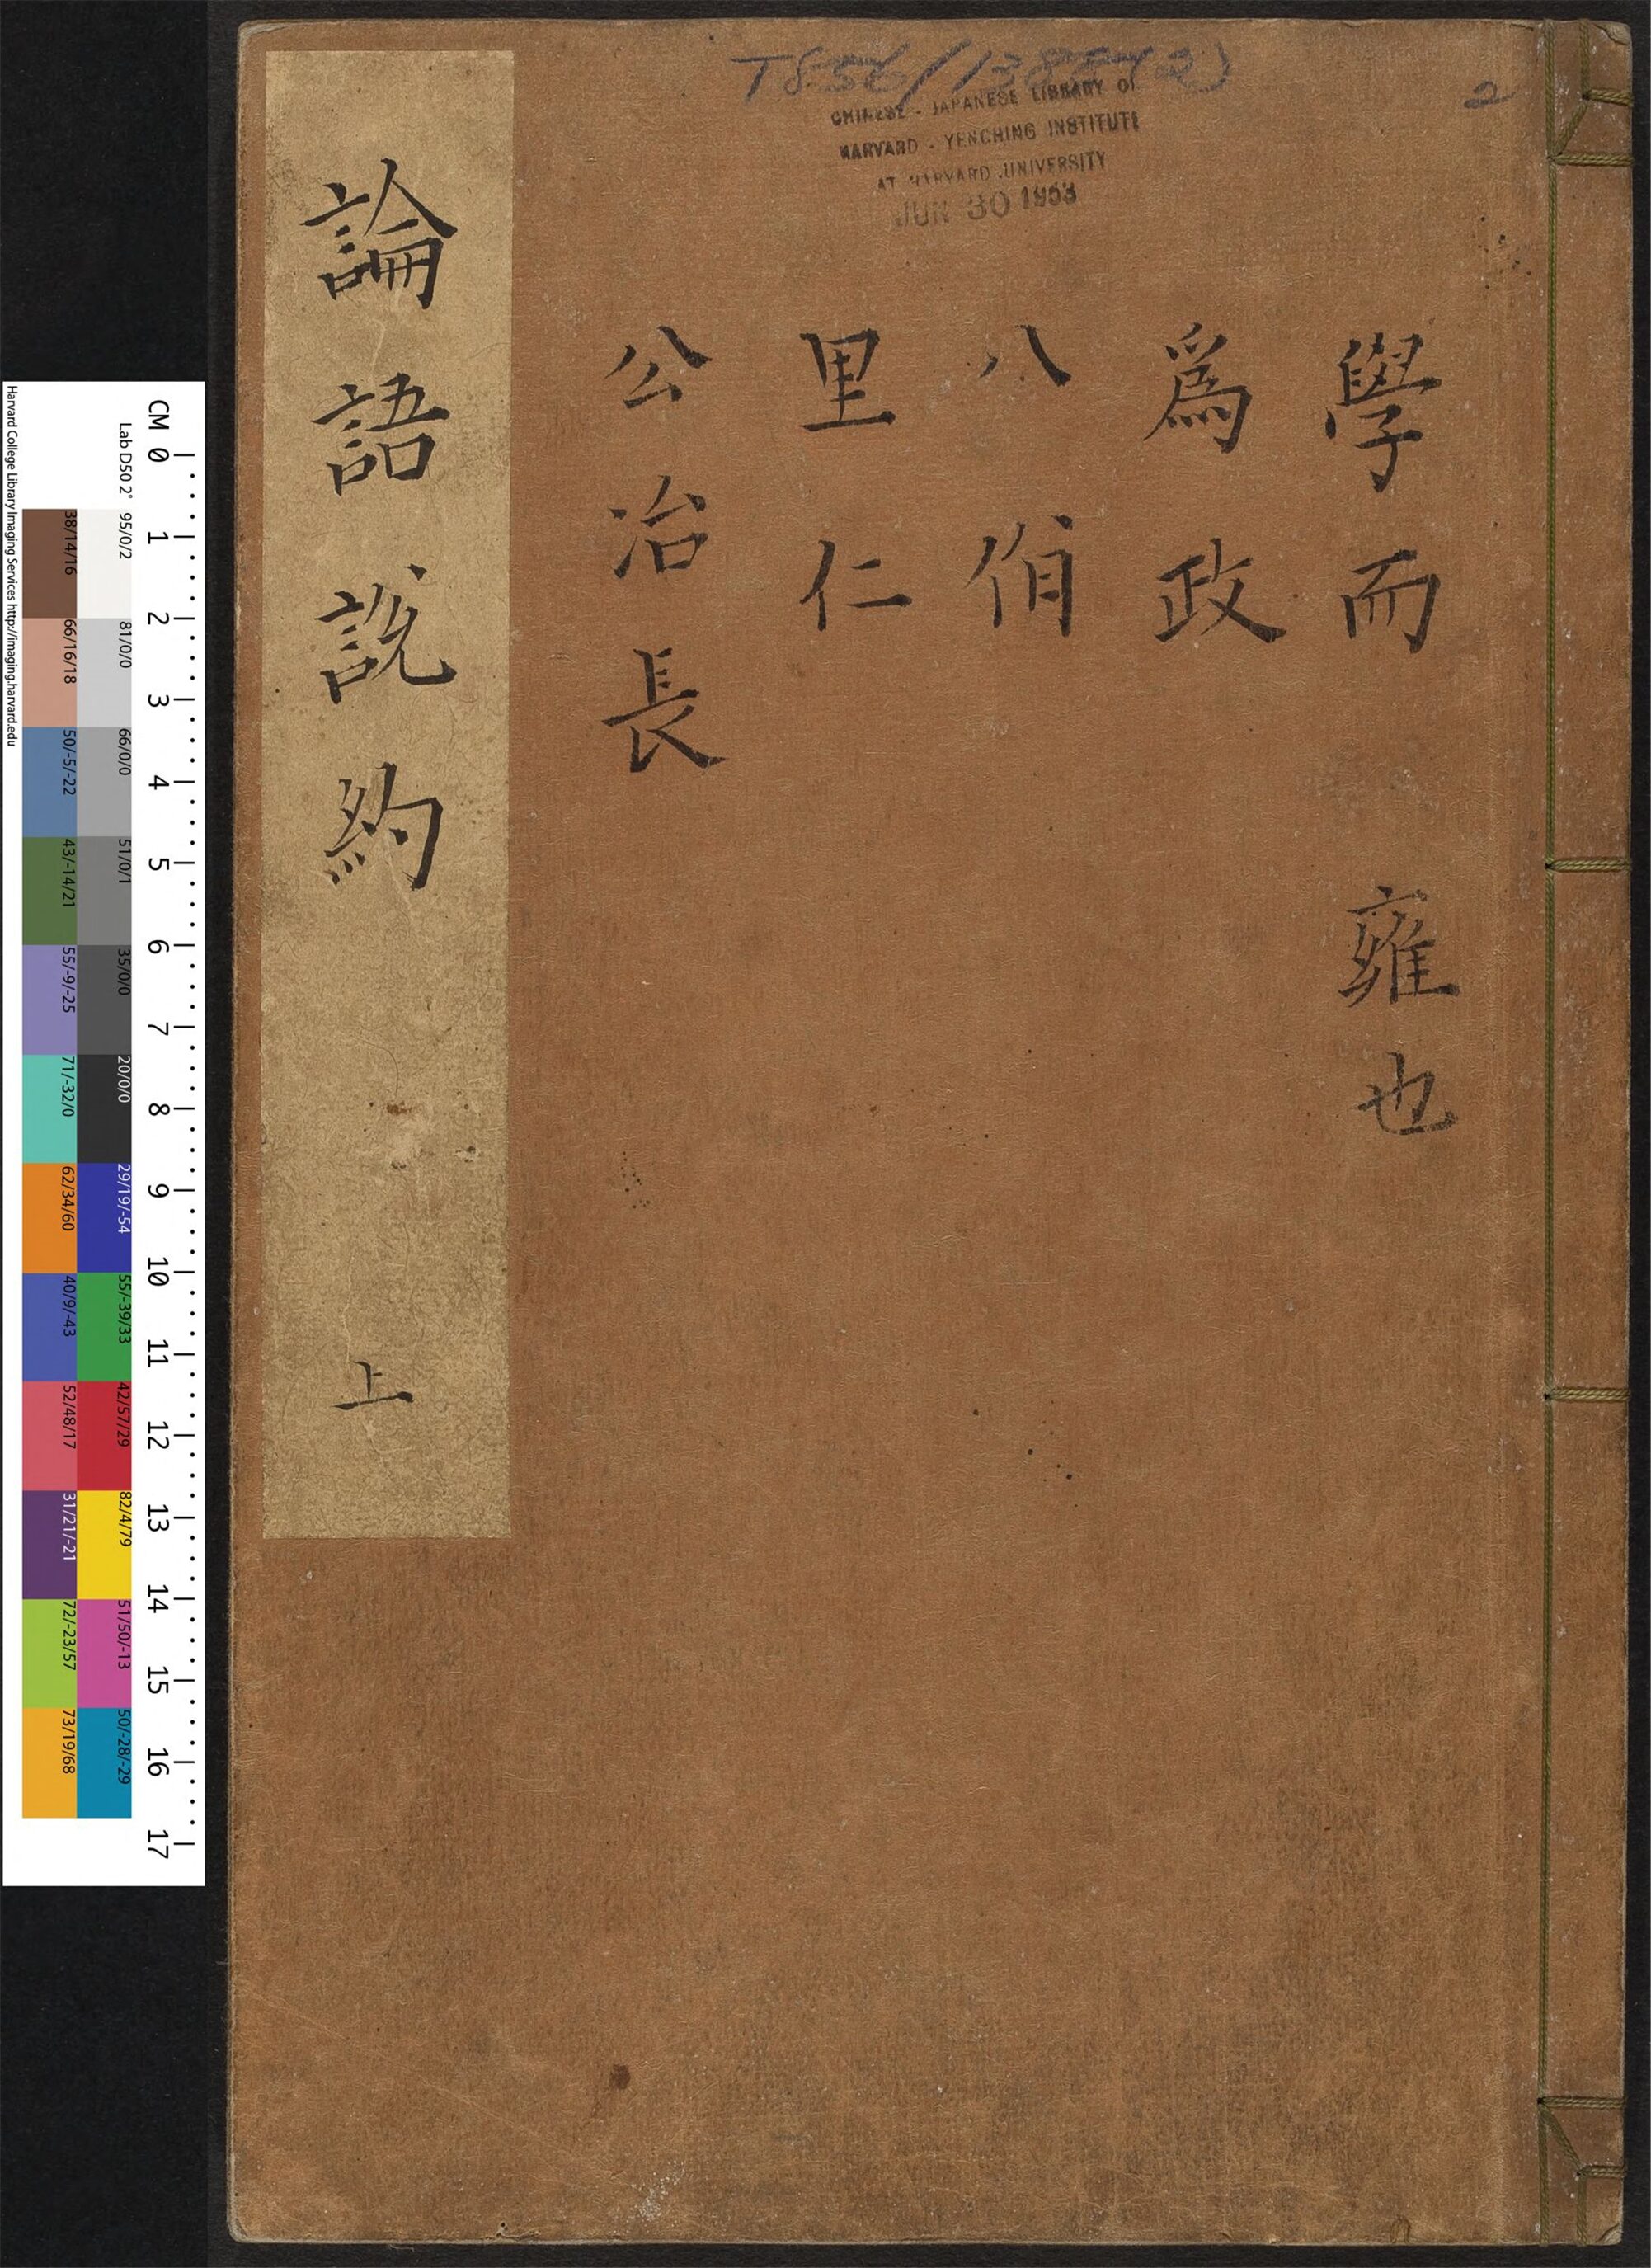 學而 雍也
爲政
八佾
里仁
公冶長
論語說約 上
2
CHINESE - JAPANESE LIBRARY OF
HARVARD - YENCHING INSTITUTE
AT HARVARD UNIVERSITY
JUN 30 1953
CM 0 1 2 3 4 5 6 7 8 9 10 11 12 13 14 15 16 17
Lab D50 2° 95/0/2 81/0/0 66/0/0 51/0/1 35/0/0 20/0/0 29/19/-54 55/-39/33 42/57/29 82/4/79 51/50/-13 50/-28/-29
38/14/16 66/16/18 50/-5/-22 43/-14/21 55/-9/-25 71/-32/0 62/34/60 40/9/-43 52/48/17 31/21/-21 72/-23/57 73/19/68
Harvard College Library Imaging Services http://imaging.harvard.edu